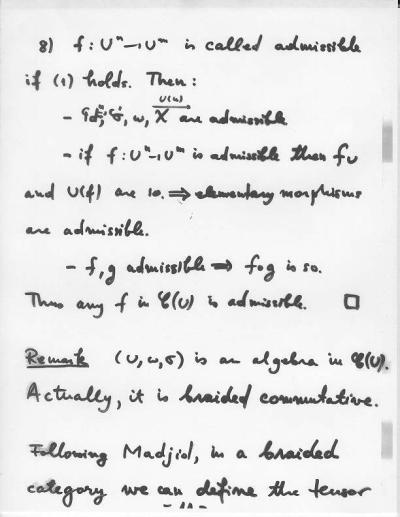 8) f : Uⁿ → Uᵐ is called admissible
if (1) holds. Then :
U(u)
- σ, ω, X are admissible
- if f : Uⁿ → Uᵐ is admissible then fU
and U(f) are so. ⇒ elementary morphisms
are admissible.
- f, g admissible ⇒ f∘g is so.
Thus any f in 𝒞(U) is admissible. □
Remark (U, ω, σ) is an algebra in 𝒞(U).
Actually, it is braided commutative.
Following Madjid, in a braided
category we can define the tensor
- 11 -